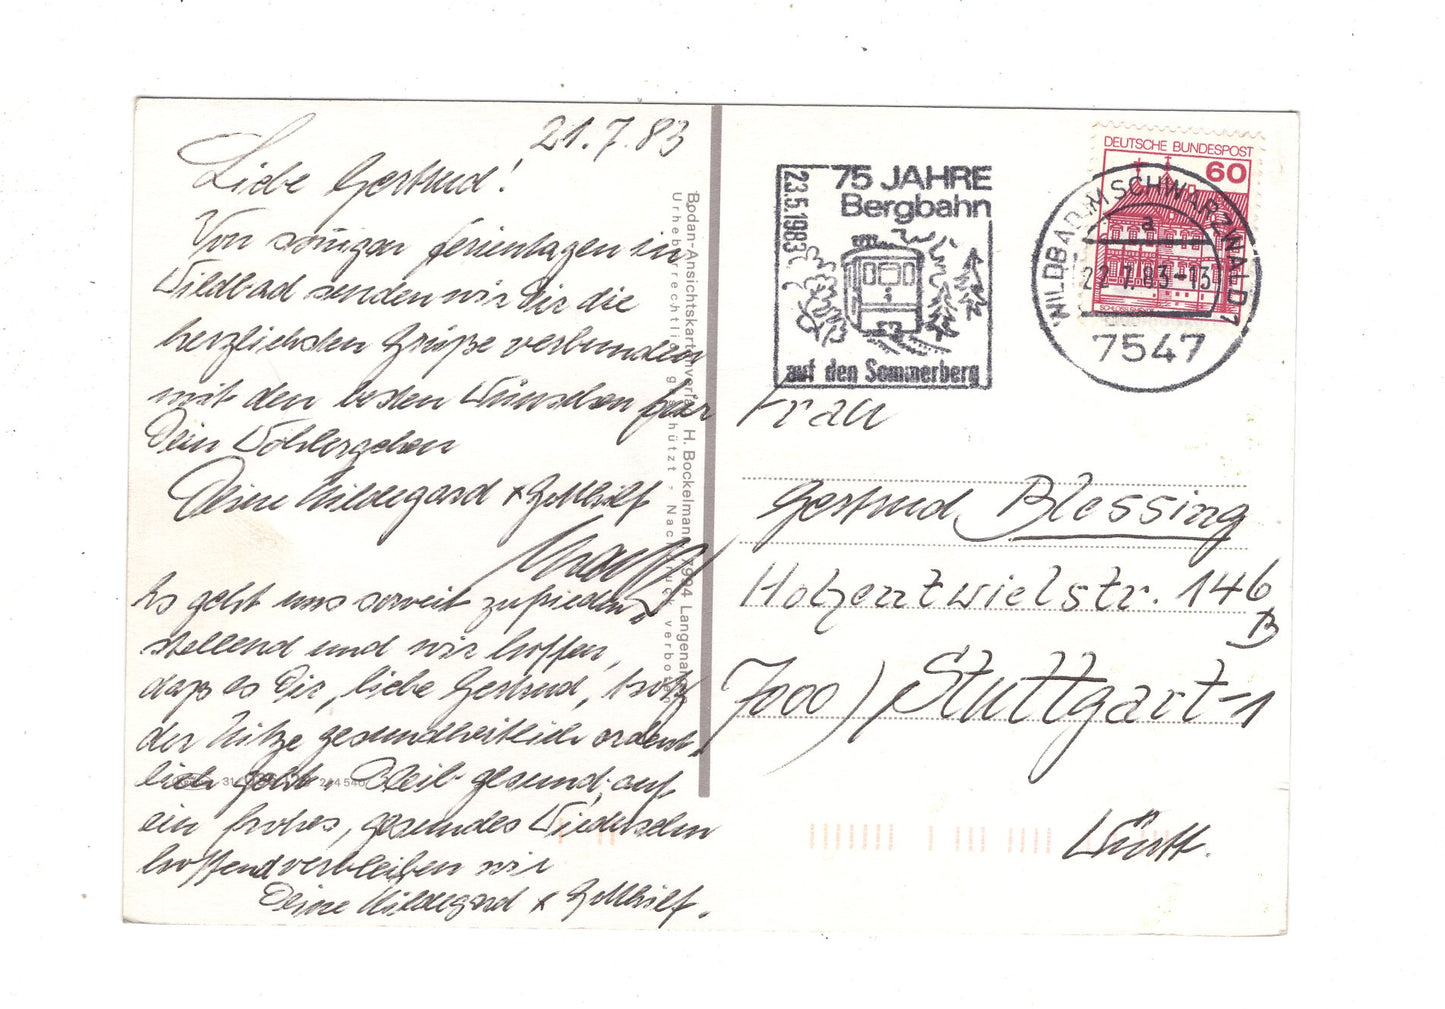 21.7.83
Liebe Gertrud!
Von sonnigen Ferientagen in
Wildbad senden wir Dir die
herzlichsten Grüße verbunden
mit den besten Wünschen für
Dein Wohlergehen
Deine Hildegard + Gotthilf
Es geht uns soweit zufrieden-
stellend und wir hoffen,
daß es Dir, liebe Gertrud, trotz
der Hitze gesundheitlich ordent-
lich geht. Bleib gesund, auf
ein frohes, gesundes Wiedersehn
hoffend verbleiben wir
Deine Hildegard + Gotthilf.
Bodan-Ansichtskartenverlag H. Bockelmann 7994 Langenargen
Urheberrechtlich geschützt - Nachdruck verboten
23.5.1983
75 JAHRE
Bergbahn
auf den Sommerberg
DEUTSCHE BUNDESPOST
60
WILDBAD IM SCHWARZWALD 1
a
22.7.83-13
7547
Frau
Gertrud Blessing
Hohentwielstr. 146
B
7000) Stuttgart-1
Württ.